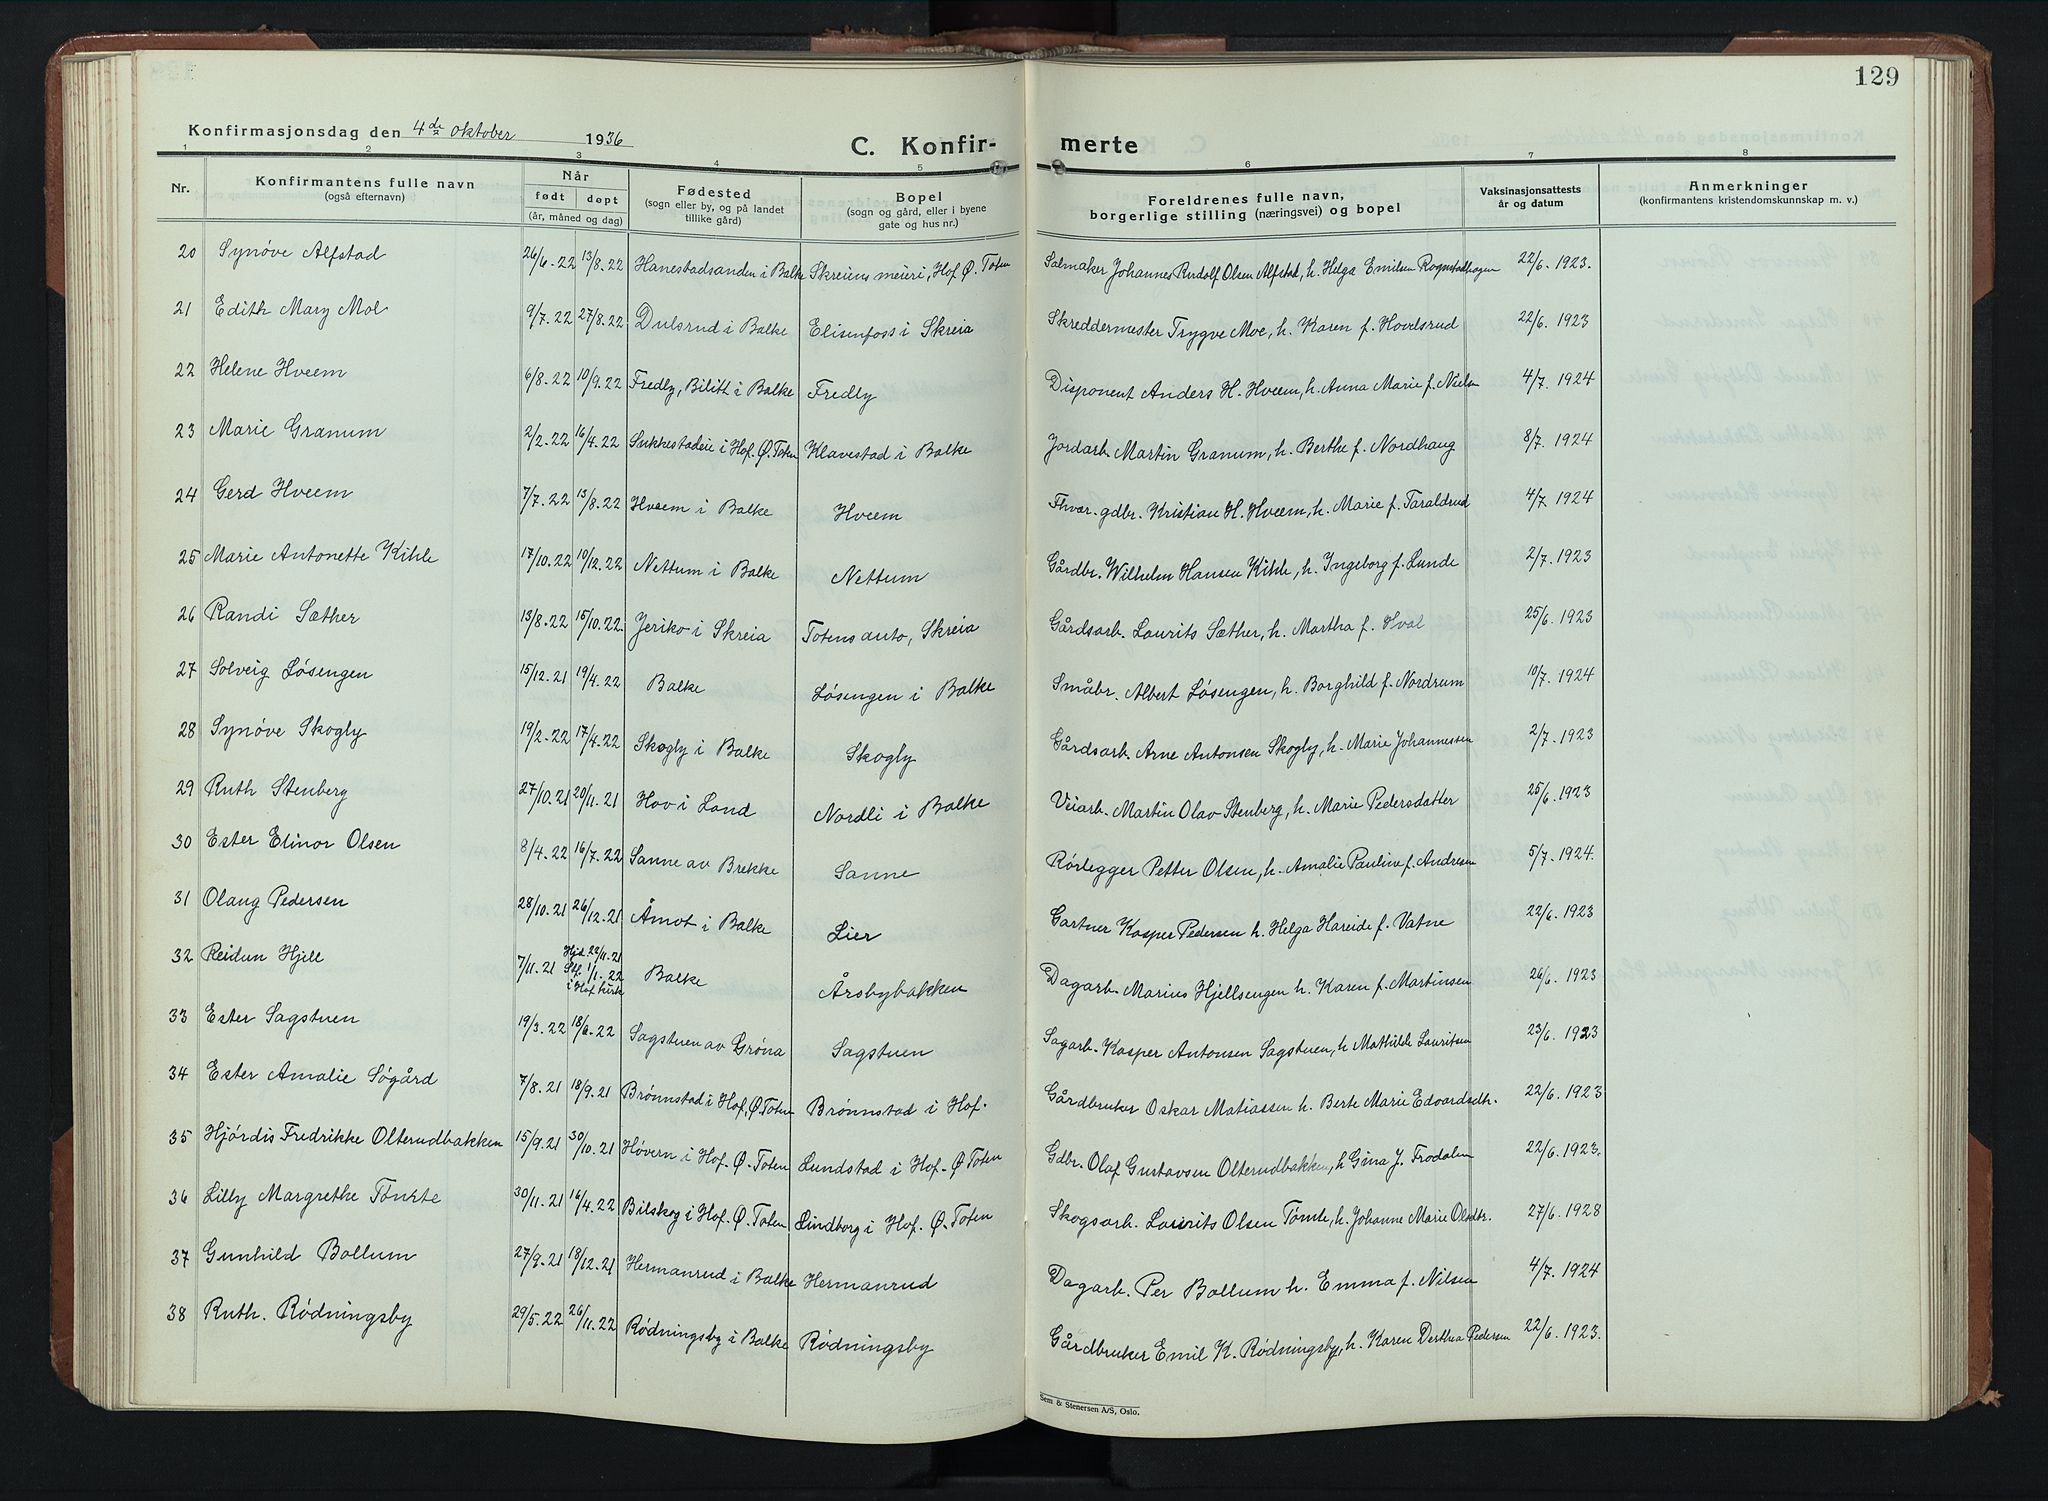 129
Konfirmasjonsdag den 4de oktober 1936
C. Konfir- merte
1 2 3 4 5 6 7 8
Nr. Konfirmantens fulle navn (også efternavn) Når født døpt (år, måned og dag) Fødested (sogn eller by, og på landet tillike gård) Bopel (sogn og gård, eller i byene gate og hus nr.) Foreldrenes fulle navn, borgerlige stilling (næringsvei) og bopel Vaksinasjonsattests år og datum Anmerkninger (konfirmantens kristendomskunnskap m. v.)
20 Synøve Alfstad 26/6-22 13/8-22 Hanestadsanden i Balke Skreiens meieri, Hof Ø. Toten Salmaker Johannes Rudolf Olsen Alfstad, h. Helga Emilsen Rognstadhagen 22/6-1923.
21 Edith Mary Moe 9/7-22 27/8-22 Dulsrud i Balke Elisenfoss i Skreia Skreddermester Trygve Moe, h. Karen f. Hovelsrud 22/6-1923
22 Helene Hveem 6/8-22 10/9-22 Fredly, Bilitt i Balke Fredly Disponent Anders H. Hveem, h. Anna Marie f. Nielsen 4/7-1924
23 Marie Granum 2/2-22 16/4-22 Sukkestadeie i Hof. Ø. Toten Klavestad i Balke Jordarb. Martin Granum, h. Berthe f. Nordhaug 8/7-1924
24 Gerd Hveem 7/7-22 13/8-22 Hveem i Balke Hveem Fhvær. gdbr. Kristian H. Hveem, h. Marie f. Taraldrud 4/7-1924
25 Marie Antonette Kihle 17/10-22 10/12-22 Nettum i Balke Nettum Gårdbr. Wilhelm Hansen Kihle, h. Ingeborg f. Lunde 2/7-1923
26 Randi Sæther 13/8-22 15/10-22. Jeriko i Skreia Totens auto, Skreia Gårdsarb. Laurits Sæther, h. Martha f. Hval 25/6-1923
27 Solveig Løsengen 15/12-21 19/4-22 Balke Løsengen i Balke Småbr. Albert Løsengen, h. Borghild f. Nordrum 10/7-1924
28 Synøve Skogly 19/2-22 17/4-22 Skogly i Balke Skogly Gårdsarb. Arne Antonsen Skogly, h. Marie Johannessen 2/7-1923
29 Ruth Stenberg 27/10-21 20/11-21 Hov i Land Nordli i Balke Veiarb. Martin Olav Stenberg, h. Marie Pedersdatter 25/6-1923
30 Ester Elinor Olsen 8/4-22 16/7-22 Sanne av Brekke Sanne Rørlegger Petter Olsen, h. Amalie Pauline f. Andresen 5/7-1924.
31 Olaug Pedersen 28/10-21 26/12-21 Åmot i Balke Lier Gartner Kasper Pedersen h. Helga Hareide f. Vatne 22/6-1923
32 Reidun Hjell 7/11-21 Hjd. 22/11-21 Stf. 1/1-22 i Hof kirke Balke Årsbybakken Dagarb. Marius Hjellsengen h. Karen f. Martinsen 26/6-1923
33 Ester Sagstuen 19/3-22 18/6-22 Sagstuen av Grøna Sagstuen Sagarb. Kasper Antonsen Sagstuen, h Mathilde Lauritsen 23/6-1923
34 Ester Amalie Søgård 7/8-21 18/9-21 Brønnstad i Hof, Ø. Toten Brønnstad i Hof. Gårdbruker Oskar Matiassen h. Berte Marie Edvardsdtr. 22/6-1923
35 Hjørdis Fredrikke Olterudbakken 15/9-21 30/10-21 Høvern i Hof-Ø-Toten Lundstad i Hof-Ø Toten Gdbr. Olaf Gustavsen Olterudbakken, h Gina J. Frodalen 22/6-1923.
36 Lilly Margrethe Tømte 30/11-21 16/4-22 Bilskog i Hof. Ø. Toten Lindborg i Hof. Ø. Toten Skogsarb. Laurits Olsen Tømte, h. Johanne Marie Olsdtr. 27/6-1928
37 Gunhild Bollum 27/9-21 18/12-21 Hermanrud i Balke Hermanrud Dagarb. Per Bollum h. Emma f. Nilsen 4/7-1924
38 Ruth. Rødningsby 29/5-22 26/11-22 Rødningsby i Balke Rødningsby Gårdbruker Emil K. Rødningsby, h. Karen Derthea Pedersen 22/6-1923.
Sem & Stenersen A/S, Oslo.